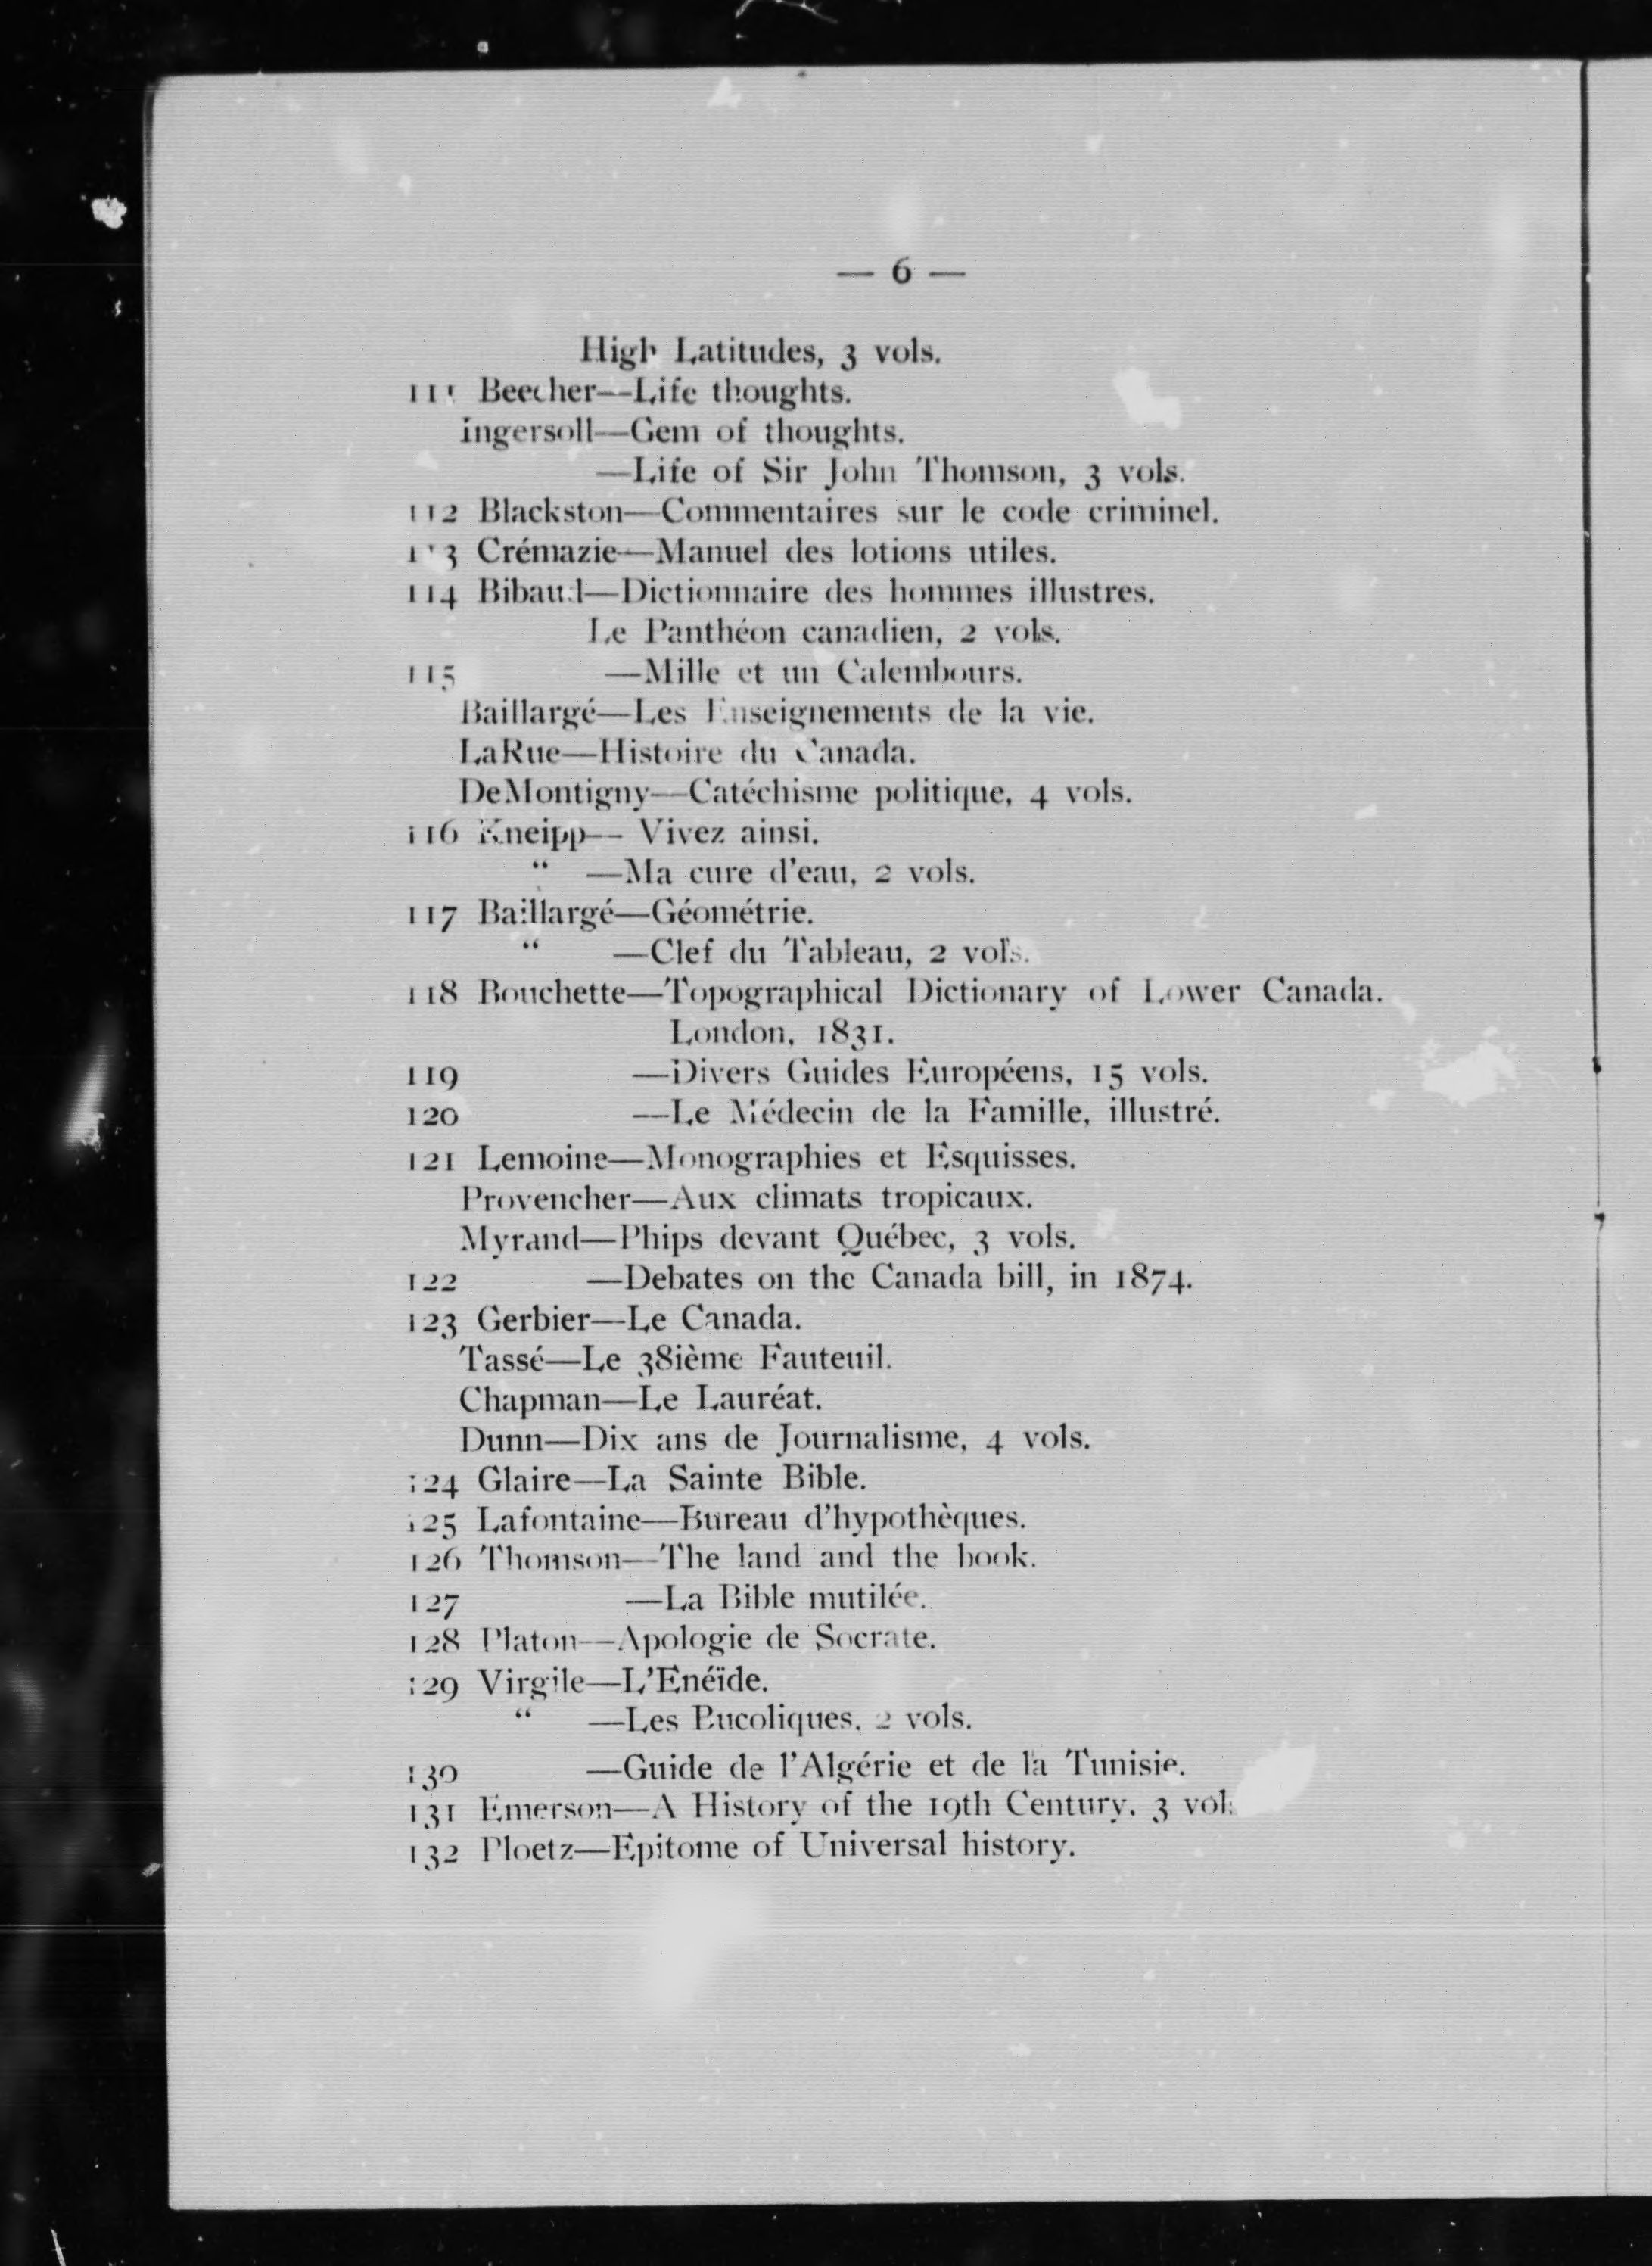 — 6 —
High Latitudes, 3 vols.
111 Beecher—Life thoughts.
Ingersoll—Gem of thoughts.
—Life of Sir John Thomson, 3 vols.
112 Blackston—Commentaires sur le code criminel.
113 Crémazie—Manuel des lotions utiles.
114 Bibaud—Dictionnaire des hommes illustres.
Le Panthéon canadien, 2 vols.
115 —Mille et un Calembours.
Baillargé—Les Enseignements de la vie.
LaRue—Histoire du Canada.
DeMontigny—Catéchisme politique, 4 vols.
116 Kneipp— Vivez ainsi.
“ —Ma cure d'eau, 2 vols.
117 Baillargé—Géométrie.
“ —Clef du Tableau, 2 vols.
118 Bouchette—Topographical Dictionary of Lower Canada.
London, 1831.
119 —Divers Guides Européens, 15 vols.
120 —Le Médecin de la Famille, illustré.
121 Lemoine—Monographies et Esquisses.
Provencher—Aux climats tropicaux.
Myrand—Phips devant Québec, 3 vols.
122 —Debates on the Canada bill, in 1874.
123 Gerbier—Le Canada.
Tassé—Le 38ième Fauteuil.
Chapman—Le Lauréat.
Dunn—Dix ans de Journalisme, 4 vols.
124 Glaire—La Sainte Bible.
125 Lafontaine—Bureau d'hypothèques.
126 Thomson—The land and the book.
127 —La Bible mutilée.
128 Platon—Apologie de Socrate.
129 Virgile—L'Enéïde.
“ —Les Bucoliques. 2 vols.
130 —Guide de l'Algérie et de la Tunisie.
131 Emerson—A History of the 19th Century. 3 vols
132 Ploetz—Epitome of Universal history.